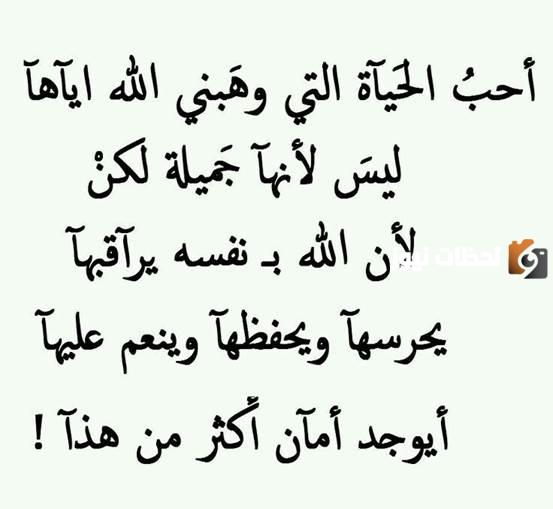 أحبُ الحَيآة التي وهَبني الله ايآهآ
ليسَ لأنهآ جَميلة لَكنْ
لأن الله بـ نفسه يرآقبهآ
لحظات نيوز
يحرسهآ ويحفظهآ وينعم عليهآ
أيوجد أمآن أَكثر من هذآ !